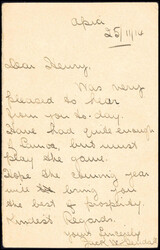 Apia
25/11/14
Dear Henry,
Was very
pleased to hear
from you to-day.
Have had quite enough
of                but must
play the game.
Hope the coming year
will bring you
the best of prosperity.
Kindest Regards.
Yours Sincerely